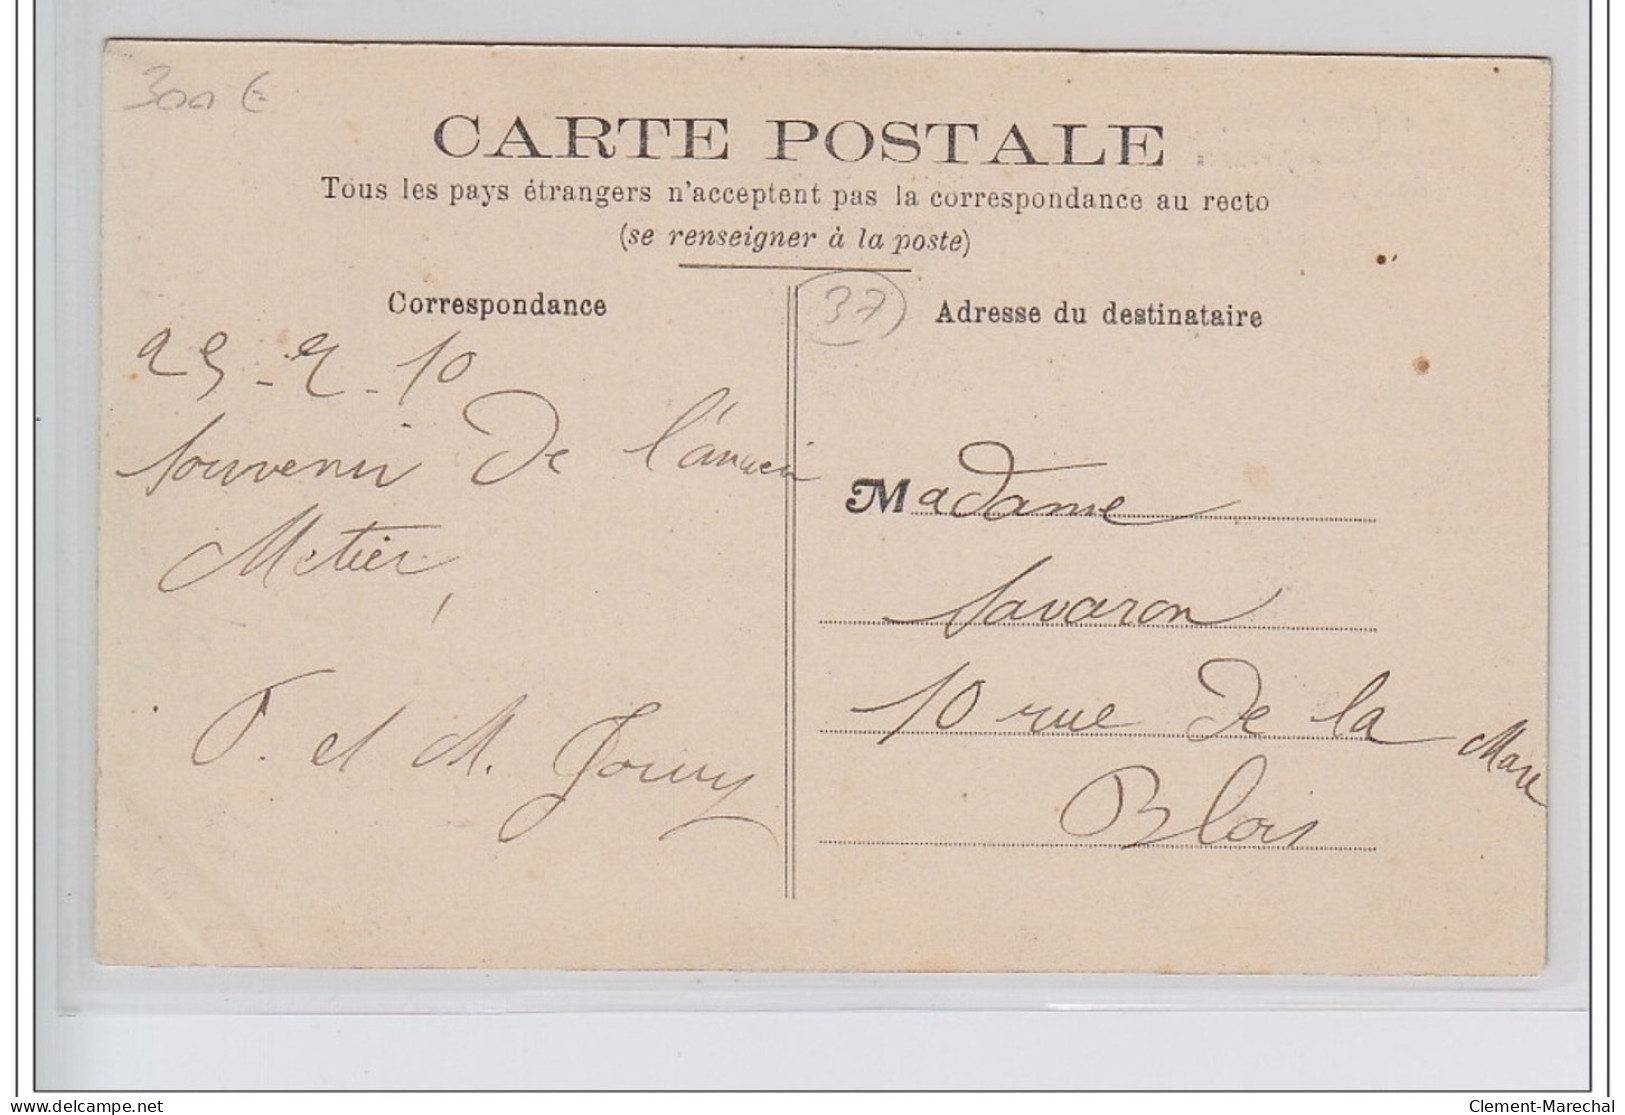 300 €
CARTE POSTALE
Tous les pays étrangers n'acceptent pas la correspondance au recto
(se renseigner à la poste)
Correspondance
25-2-10
Souvenir de l'ancien
Metier,
et M.
37
Adresse du destinataire
Madame
Savaron
10 rue de la Mare
Blois
delcampe.net
Clement-Marechal